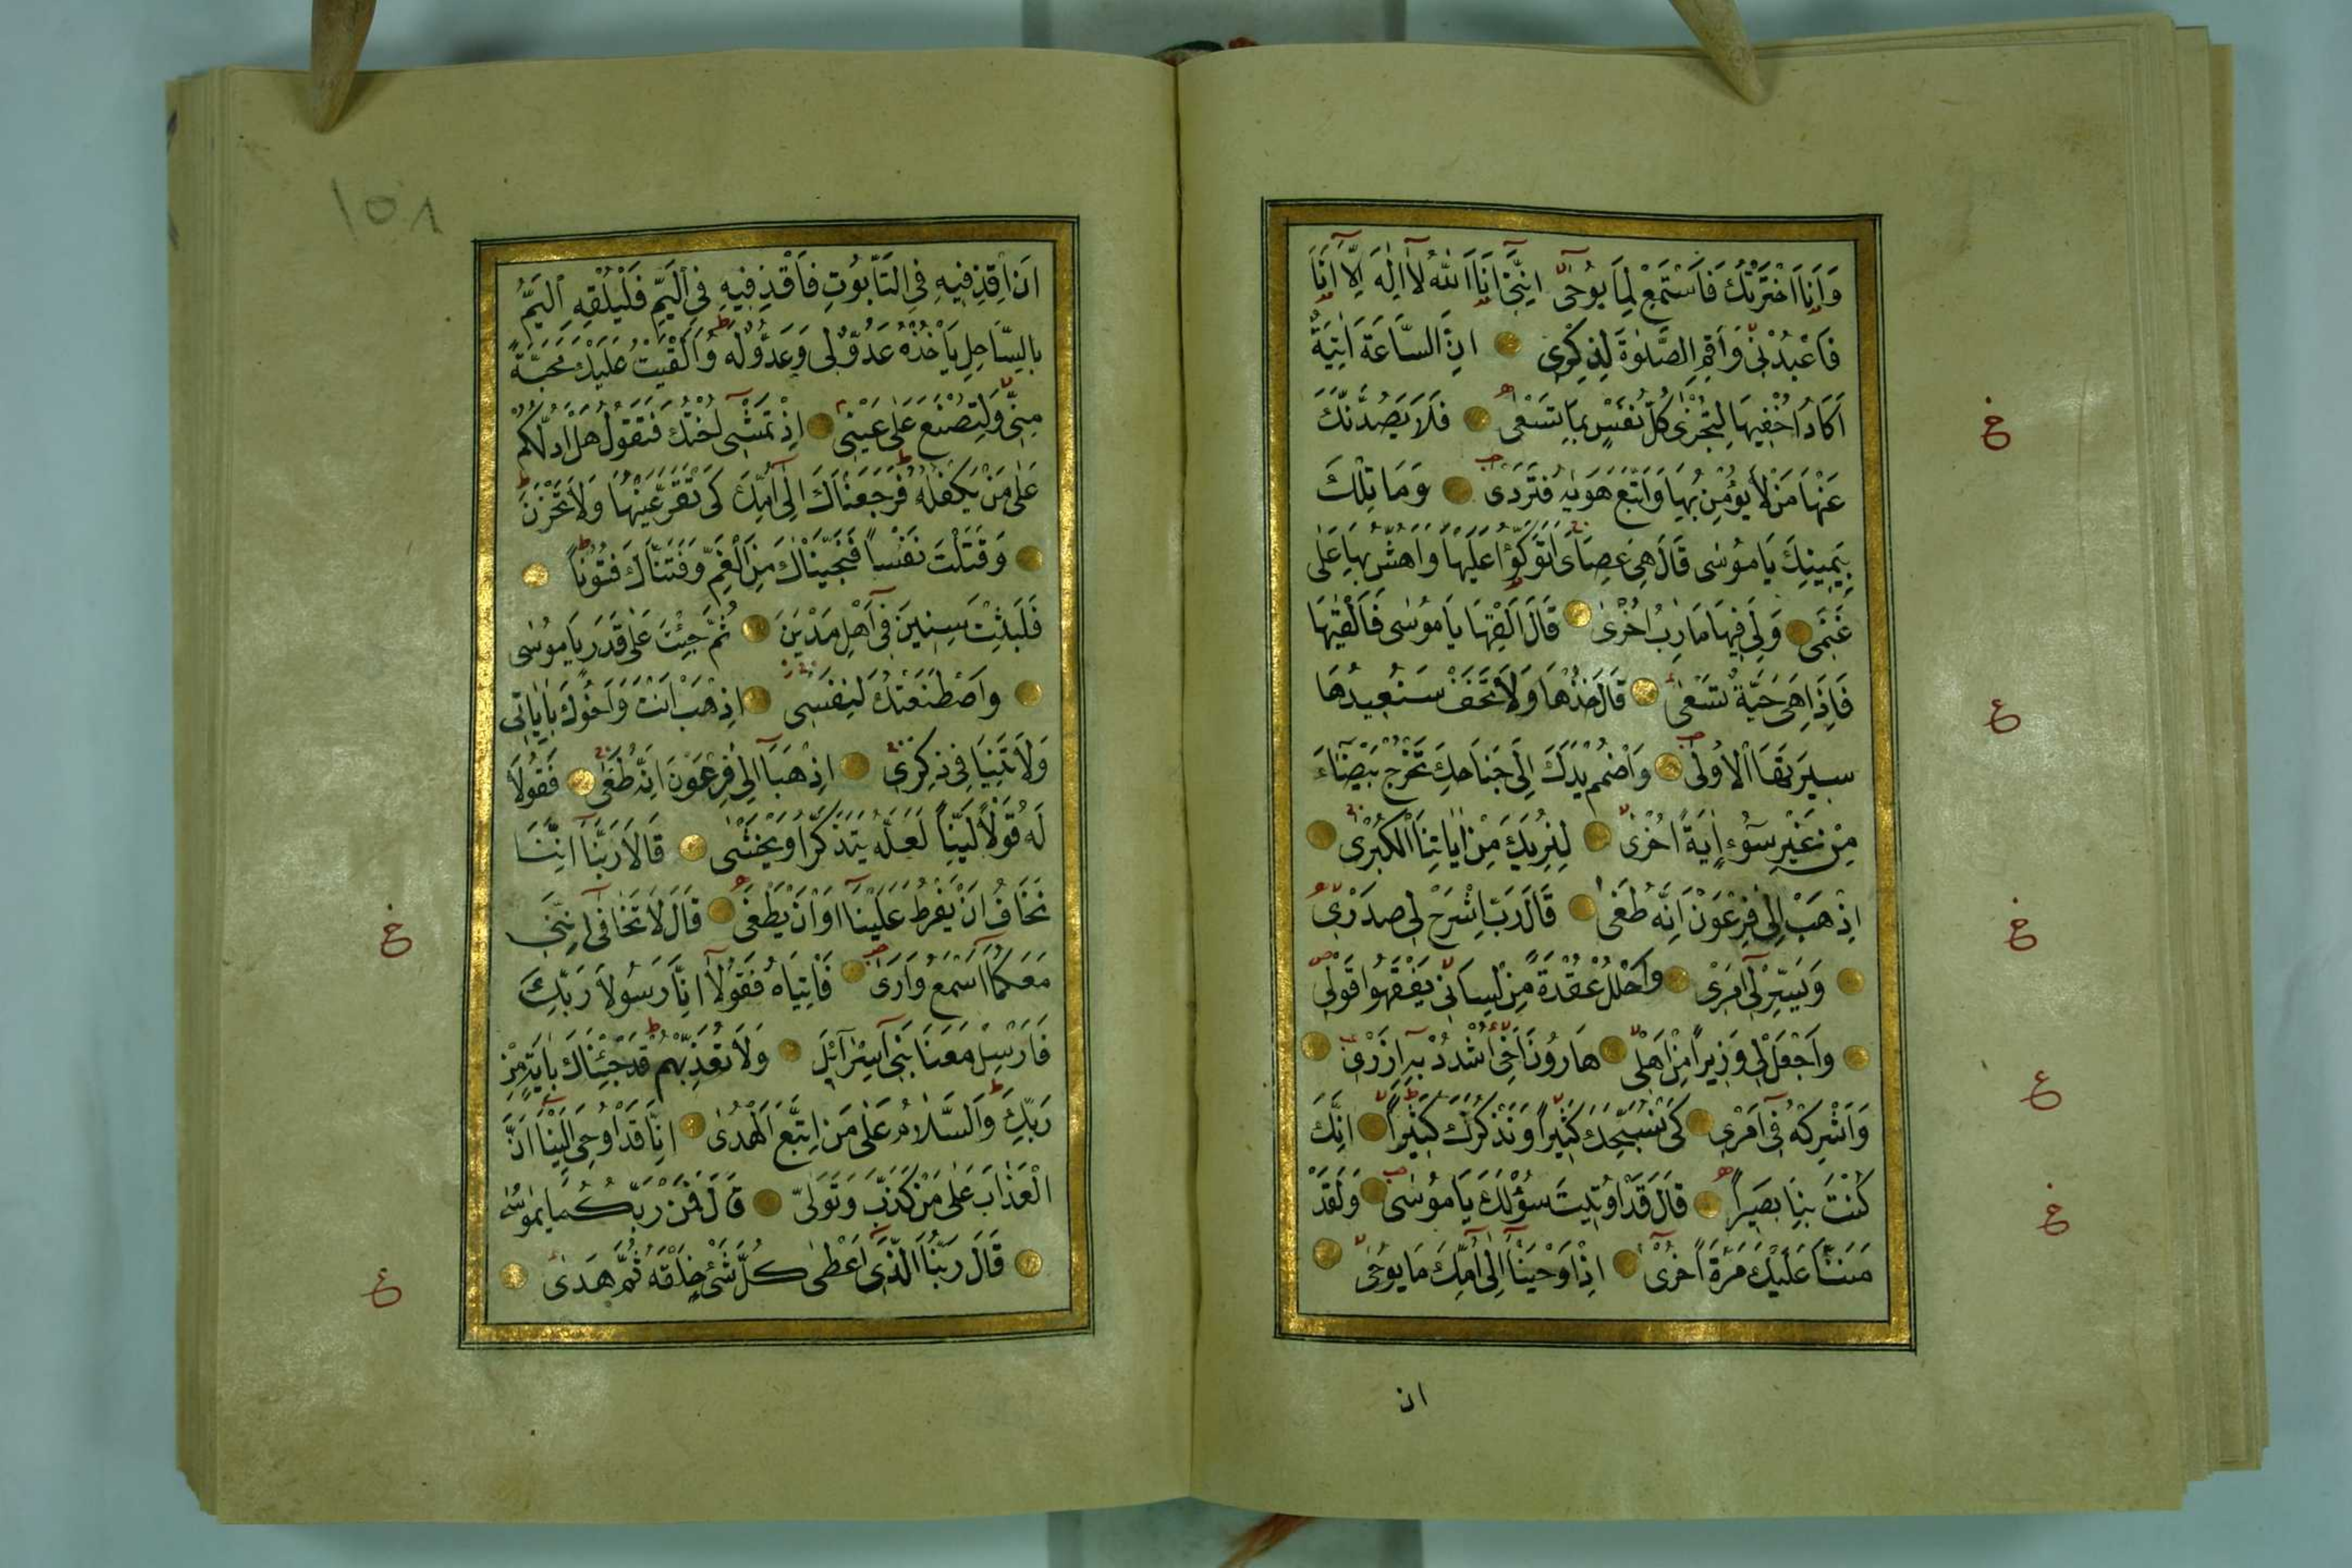 وَاَنَا اخْتَرْتُكَ فَاسْتَمِعْ لِمَا يُوحٰى اِنَّنِى اَنَا اللّٰهُ لَا اِلٰهَ اِلَّا اَنَا
فَاعْبُدْنِى وَاَقِمِ الصَّلٰوةَ لِذِكْرِى اِنَّ السَّاعَةَ اٰتِيَةٌ
اَكَادُ اُخْفِيهَا لِتُجْزٰى كُلُّ نَفْسٍ بِمَا تَسْعٰى فَلَا يَصُدَّنَّكَ
عَنْهَا مَنْ لَا يُؤْمِنُ بِهَا وَاتَّبَعَ هَوٰيهُ فَتَرْدٰى وَمَا تِلْكَ
بِيَمِينِكَ يَا مُوسٰى قَالَ هِىَ عَصَاىَ اَتَوَكَّؤُا عَلَيْهَا وَاَهُشُّ بِهَا عَلٰى
غَنَمِى وَلِىَ فِيهَا مَاٰرِبُ اُخْرٰى قَالَ اَلْقِهَا يَا مُوسٰى فَاَلْقٰيهَا
فَاِذَا هِىَ حَيَّةٌ تَسْعٰى قَالَ خُذْهَا وَلَا تَخَفْ سَنُعِيدُهَا
سِيرَتَهَا الْاُولٰى وَاضْمُمْ يَدَكَ اِلٰى جَنَاحِكَ تَخْرُجْ بَيْضَاءَ
مِنْ غَيْرِ سُوءٍ اٰيَةً اُخْرٰى لِنُرِيَكَ مِنْ اٰيَاتِنَا الْكُبْرٰى
اِذْهَبْ اِلٰى فِرْعَوْنَ اِنَّهُ طَغٰى قَالَ رَبِّ اشْرَحْ لِى صَدْرِى
وَيَسِّرْ لِى اَمْرِى وَاحْلُلْ عُقْدَةً مِنْ لِسَانِى يَفْقَهُوا قَوْلِى
وَاجْعَلْ لِى وَزِيرًا مِنْ اَهْلِى هَارُونَ اَخِى اشْدُدْ بِهِ اَزْرِى
وَاَشْرِكْهُ فِى اَمْرِى كَىْ نُسَبِّحَكَ كَثِيرًا وَنَذْكُرَكَ كَثِيرًا اِنَّكَ
كُنْتَ بِنَا بَصِيرًا قَالَ قَدْ اُوتِيتَ سُؤْلَكَ يَا مُوسٰى وَلَقَدْ
مَنَنَّا عَلَيْكَ مَرَّةً اُخْرٰى اِذْ اَوْحَيْنَا اِلٰى اُمِّكَ مَا يُوحٰى
ان
خ
ع
خ
ع
خ
١٥٨
اَنِ اقْذِفِيهِ فِى التَّابُوتِ فَاقْذِفِيهِ فِى الْيَمِّ فَلْيُلْقِهِ الْيَمُّ
بِالسَّاحِلِ يَأْخُذْهُ عَدُوٌّ لِى وَعَدُوٌّ لَهُ وَاَلْقَيْتُ عَلَيْكَ مَحَبَّةً
مِنِّى وَلِتُصْنَعَ عَلٰى عَيْنِى اِذْ تَمْشِى اُخْتُكَ فَتَقُولُ هَلْ اَدُلُّكُمْ
عَلٰى مَنْ يَكْفُلُهُ فَرَجَعْنَاكَ اِلٰى اُمِّكَ كَىْ تَقَرَّ عَيْنُهَا وَلَا تَحْزَنَ
وَقَتَلْتَ نَفْسًا فَنَجَّيْنَاكَ مِنَ الْغَمِّ وَفَتَنَّاكَ فُتُونًا
فَلَبِثْتَ سِنِينَ فِى اَهْلِ مَدْيَنَ ثُمَّ جِئْتَ عَلٰى قَدَرٍ يَا مُوسٰى
وَاصْطَنَعْتُكَ لِنَفْسِى اِذْهَبْ اَنْتَ وَاَخُوكَ بِاٰيَاتِى
وَلَا تَنِيَا فِى ذِكْرِى اِذْهَبَا اِلٰى فِرْعَوْنَ اِنَّهُ طَغٰى فَقُولَا
لَهُ قَوْلًا لَيِّنًا لَعَلَّهُ يَتَذَكَّرُ اَوْ يَخْشٰى قَالَا رَبَّنَا اِنَّنَا
نَخَافُ اَنْ يَفْرُطَ عَلَيْنَا اَوْ اَنْ يَطْغٰى قَالَ لَا تَخَافَا اِنَّنِى
مَعَكُمَا اَسْمَعُ وَاَرٰى فَاْتِيَاهُ فَقُولَا اِنَّا رَسُولَا رَبِّكَ
فَاَرْسِلْ مَعَنَا بَنِى اِسْرَائِلَ وَلَا تُعَذِّبْهُمْ قَدْ جِئْنَاكَ بِاٰيَةٍ مِنْ
رَبِّكَ وَالسَّلَامُ عَلٰى مَنِ اتَّبَعَ الْهُدٰى اِنَّا قَدْ اُوحِىَ اِلَيْنَا اَنَّ
الْعَذَابَ عَلٰى مَنْ كَذَّبَ وَتَوَلّٰى قَالَ فَمَنْ رَبُّكُمَا يَا مُوسٰى
قَالَ رَبُّنَا الَّذِى اَعْطٰى كُلَّ شَىْءٍ خَلْقَهُ ثُمَّ هَدٰى
خ
ع